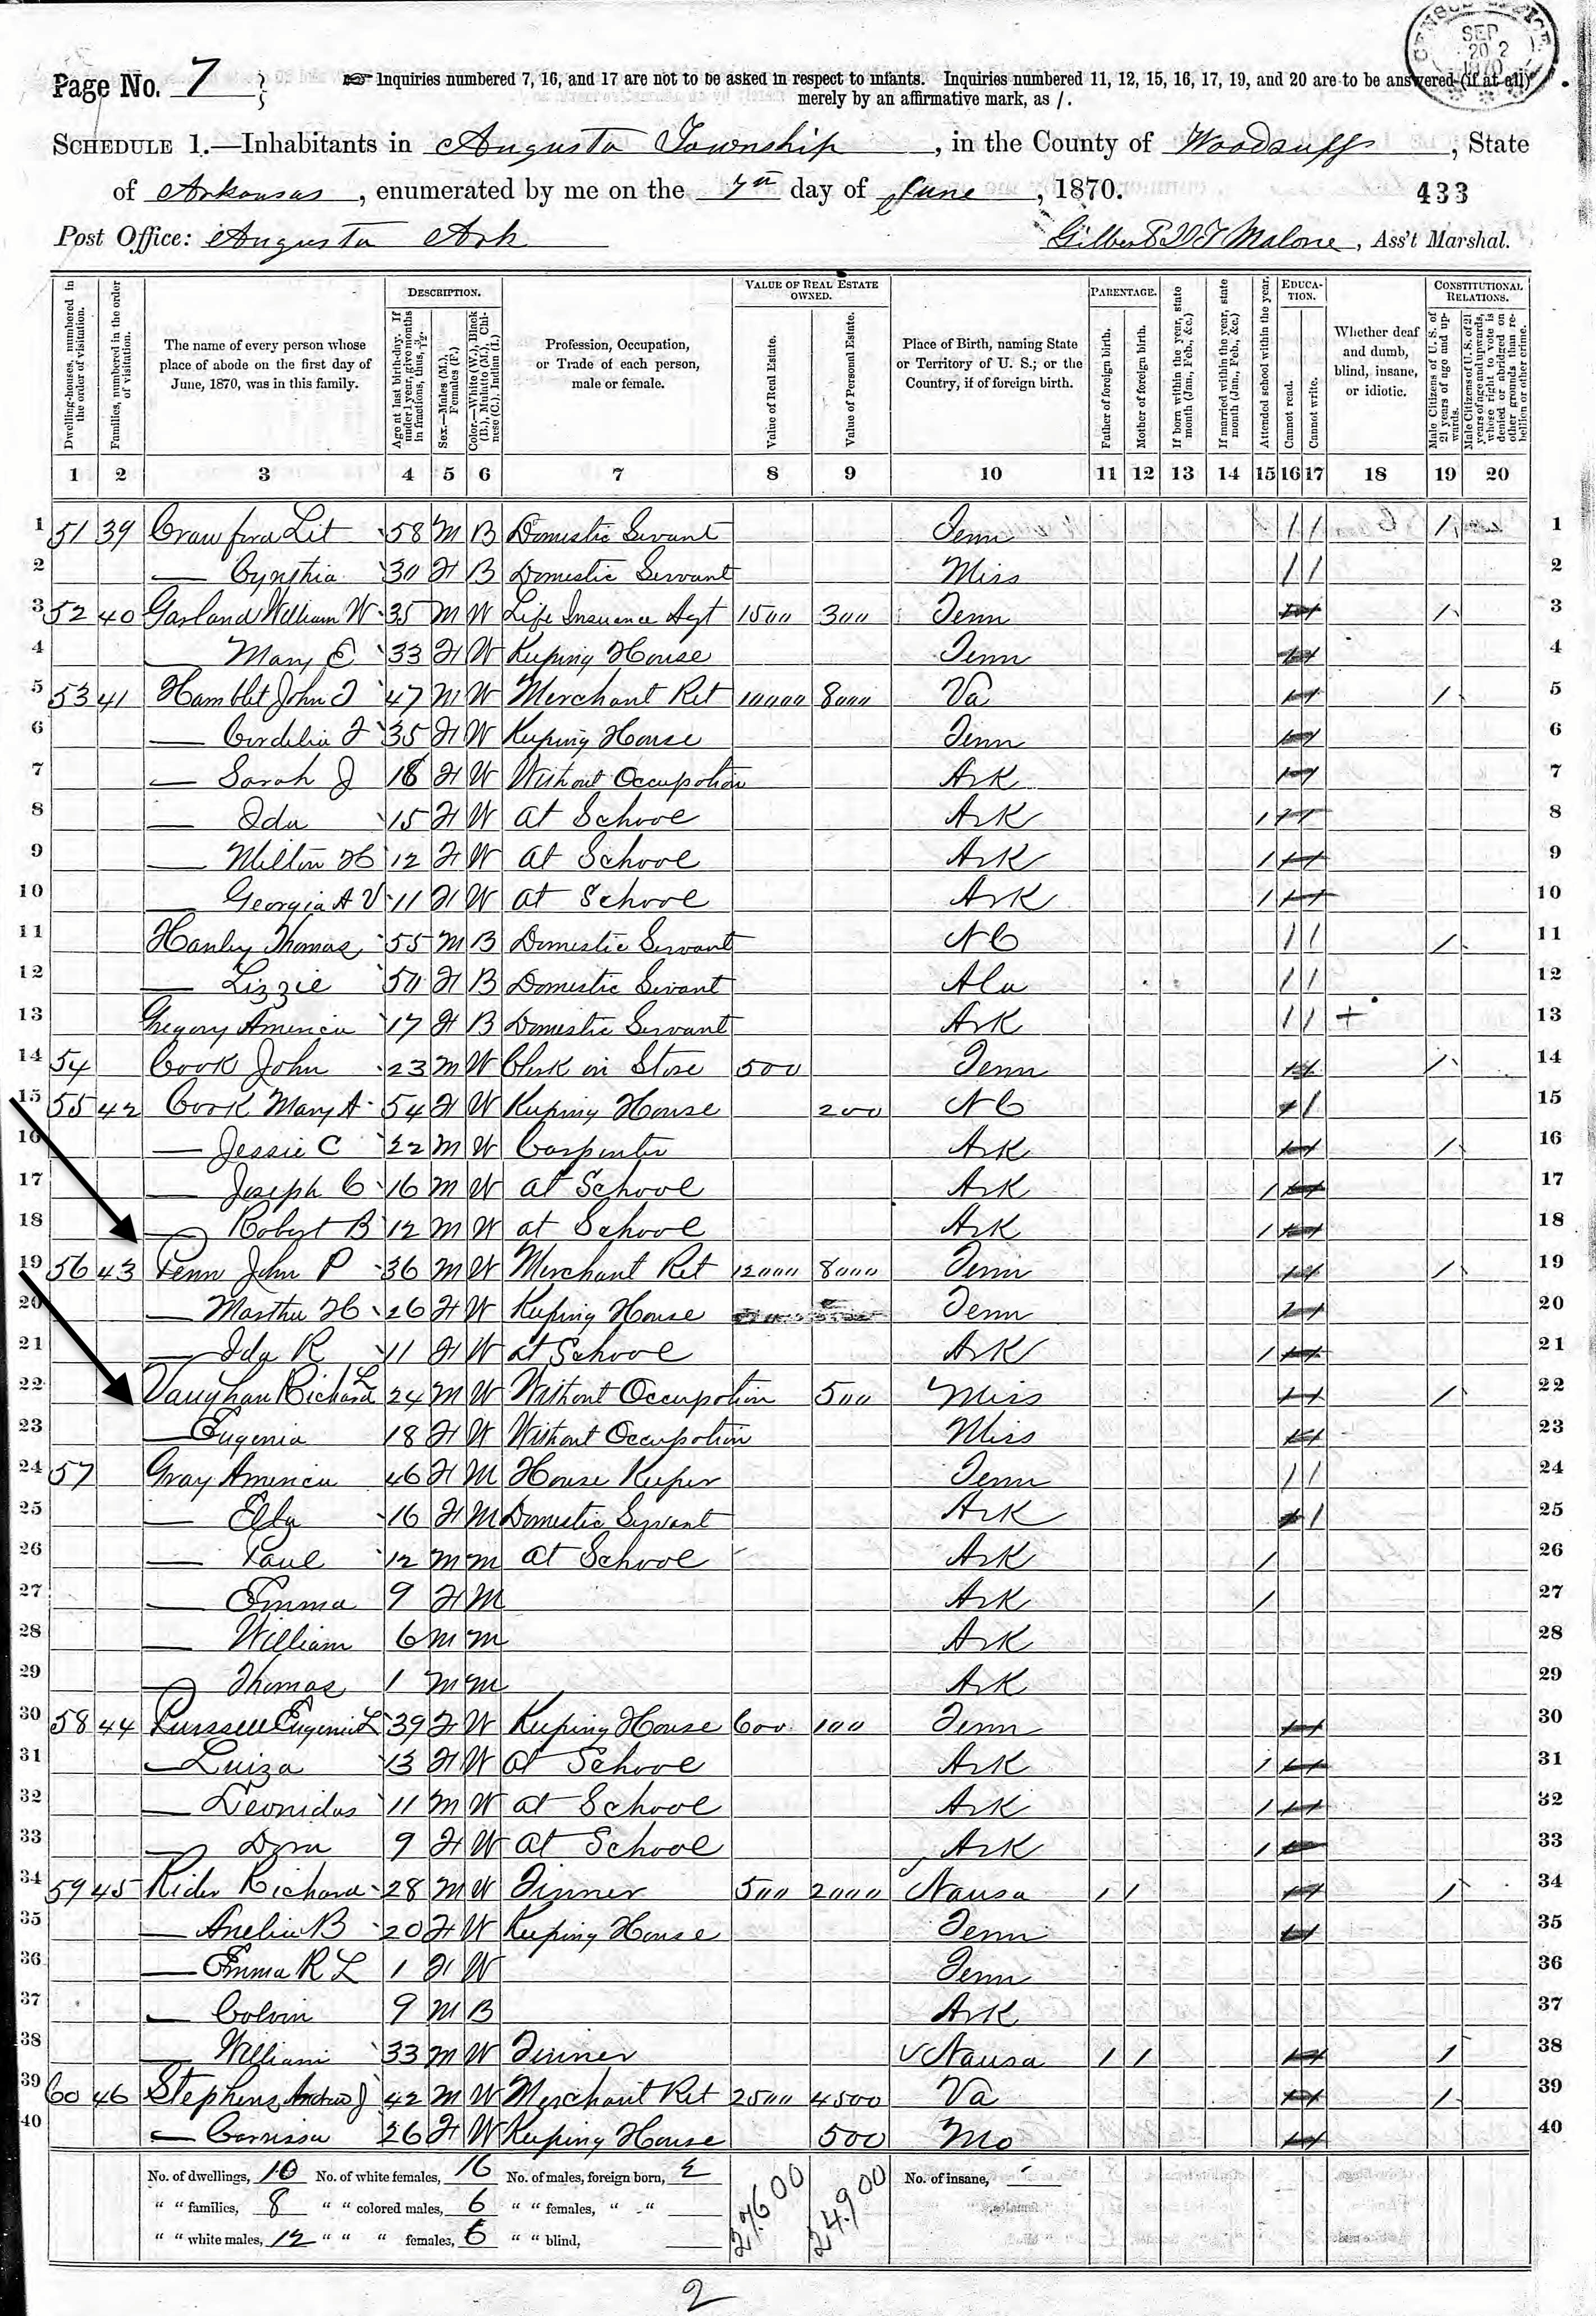 CENSUS OFFICE SEP 20 1870
Page No. 7 Inquiries numbered 7, 16, and 17 are not to be asked in respect to infants. Inquiries numbered 11, 12, 15, 16, 17, 19, and 20 are to be answered (if at all)
merely by an affirmative mark, as /.
SCHEDULE 1.—Inhabitants in Augusta Township, in the County of Woodruff, State
of Arkansas, enumerated by me on the 7th day of June, 1870. 433
Post Office: Augusta Ark Malone, Ass't Marshal.
DESCRIPTION. VALUE OF REAL ESTATE OWNED. PARENTAGE. EDUCATION. CONSTITUTIONAL RELATIONS.
Dwelling-houses, numbered in the order of visitation.
Families, numbered in the order of visitation.
The name of every person whose place of abode on the first day of June, 1870, was in this family.
Age at last birth-day. If under 1 year, give months in fractions, thus, 3/12.
Sex.—Males (M.), Females (F.)
Color.—White (W.), Black (B.), Mulatto (M.), Chinese (C.), Indian (I.)
Profession, Occupation, or Trade of each person, male or female.
Value of Real Estate.
Value of Personal Estate.
Place of Birth, naming State or Territory of U. S.; or the Country, if of foreign birth.
Father of foreign birth.
Mother of foreign birth.
If born within the year, state month (Jan., Feb., &c.)
If married within the year, state month (Jan., Feb., &c.)
Attended school within the year.
Cannot read.
Cannot write.
Whether deaf and dumb, blind, insane, or idiotic.
Male Citizens of U. S. of 21 years of age and upwards.
Male Citizens of U. S. of 21 years of age and upwards, whose right to vote is denied or abridged on other grounds than rebellion or other crime.
1 2 3 4 5 6 7 8 9 10 11 12 13 14 15 16 17 18 19 20
1 51 39 Crawford Lit 58 M B Domestic Servant Tenn / / / 1
2 — Cynthia 30 F B Domestic Servant Miss / / 2
3 52 40 Garland William W 35 M W Life Insurance Agt 1500 300 Tenn / 3
4 — Mary E 33 F W Keeping House Tenn 4
5 53 41 Hamblet John T 47 M W Merchant Ret 10000 8000 Va / 5
6 — Cordelia F 35 F W Keeping House Tenn 6
7 — Sarah J 18 F W Without Occupation Ark 7
8 — Ida 15 F W at School Ark / 8
9 — Milton H 12 F W at School Ark / 9
10 — Georgia A V 11 F W at School Ark / 10
11 Hanley Thomas 55 M B Domestic Servant NC / / / 11
12 — Lizzie 50 F B Domestic Servant Ala / / 12
13 Gregory America 17 F B Domestic Servant Ark / / + 13
14 54 Cook John 23 M W Clerk in Store 500 Tenn / 14
15 55 42 Cook Mary A 54 F W Keeping House 200 NC / 15
16 — Jessie C 22 M W Carpenter Ark / 16
17 — Joseph C 16 M W at School Ark / 17
18 — Robert B 12 M W at School Ark / 18
19 56 43 Penn John P 36 M W Merchant Ret 12000 8000 Tenn / 19
20 — Martha H 26 F W Keeping House Tenn 20
21 — Ida R 11 F W at School Ark / 21
22 Vaughan Richard L 24 M W Without Occupation 500 Miss / 22
23 — Eugenia 18 F W Without Occupation Miss 23
24 57 Gray America 46 F M House Keeper Tenn / / 24
25 — Ella 16 F M Domestic Servant Ark / 25
26 — Paul 12 M M at School Ark / 26
27 — Emma 9 F M Ark / 27
28 — William 6 M M Ark 28
29 — Thomas 1 M M Ark 29
30 58 44 Purssell Eugenia L 39 F W Keeping House 600 100 Tenn 30
31 — Luiza 13 F W at School Ark / 31
32 — Leonidas 11 M W at School Ark / 32
33 — Dora 9 F W at School Ark / 33
34 59 45 Rider Richard 28 M W Tinner 500 2000 Nausa / / / 34
35 — Amelia B 20 F W Keeping House Tenn 35
36 — Emma R L 1 F W Tenn 36
37 — Colvin 9 M B Ark 37
38 — William 33 M W Tinner Nausa / / / 38
39 60 46 Stephens Andrew J 42 M W Merchant Ret 2500 4500 Va / 39
40 — 26 F W Keeping House 500 Mo 40
No. of dwellings, 10 No. of white females, 16 No. of males, foreign born, 2 27600 24900 No. of insane,
" " families, 8 " " colored males, 6 " " females, " "
" " white males, 12 " " " females, 6 " " blind,
2